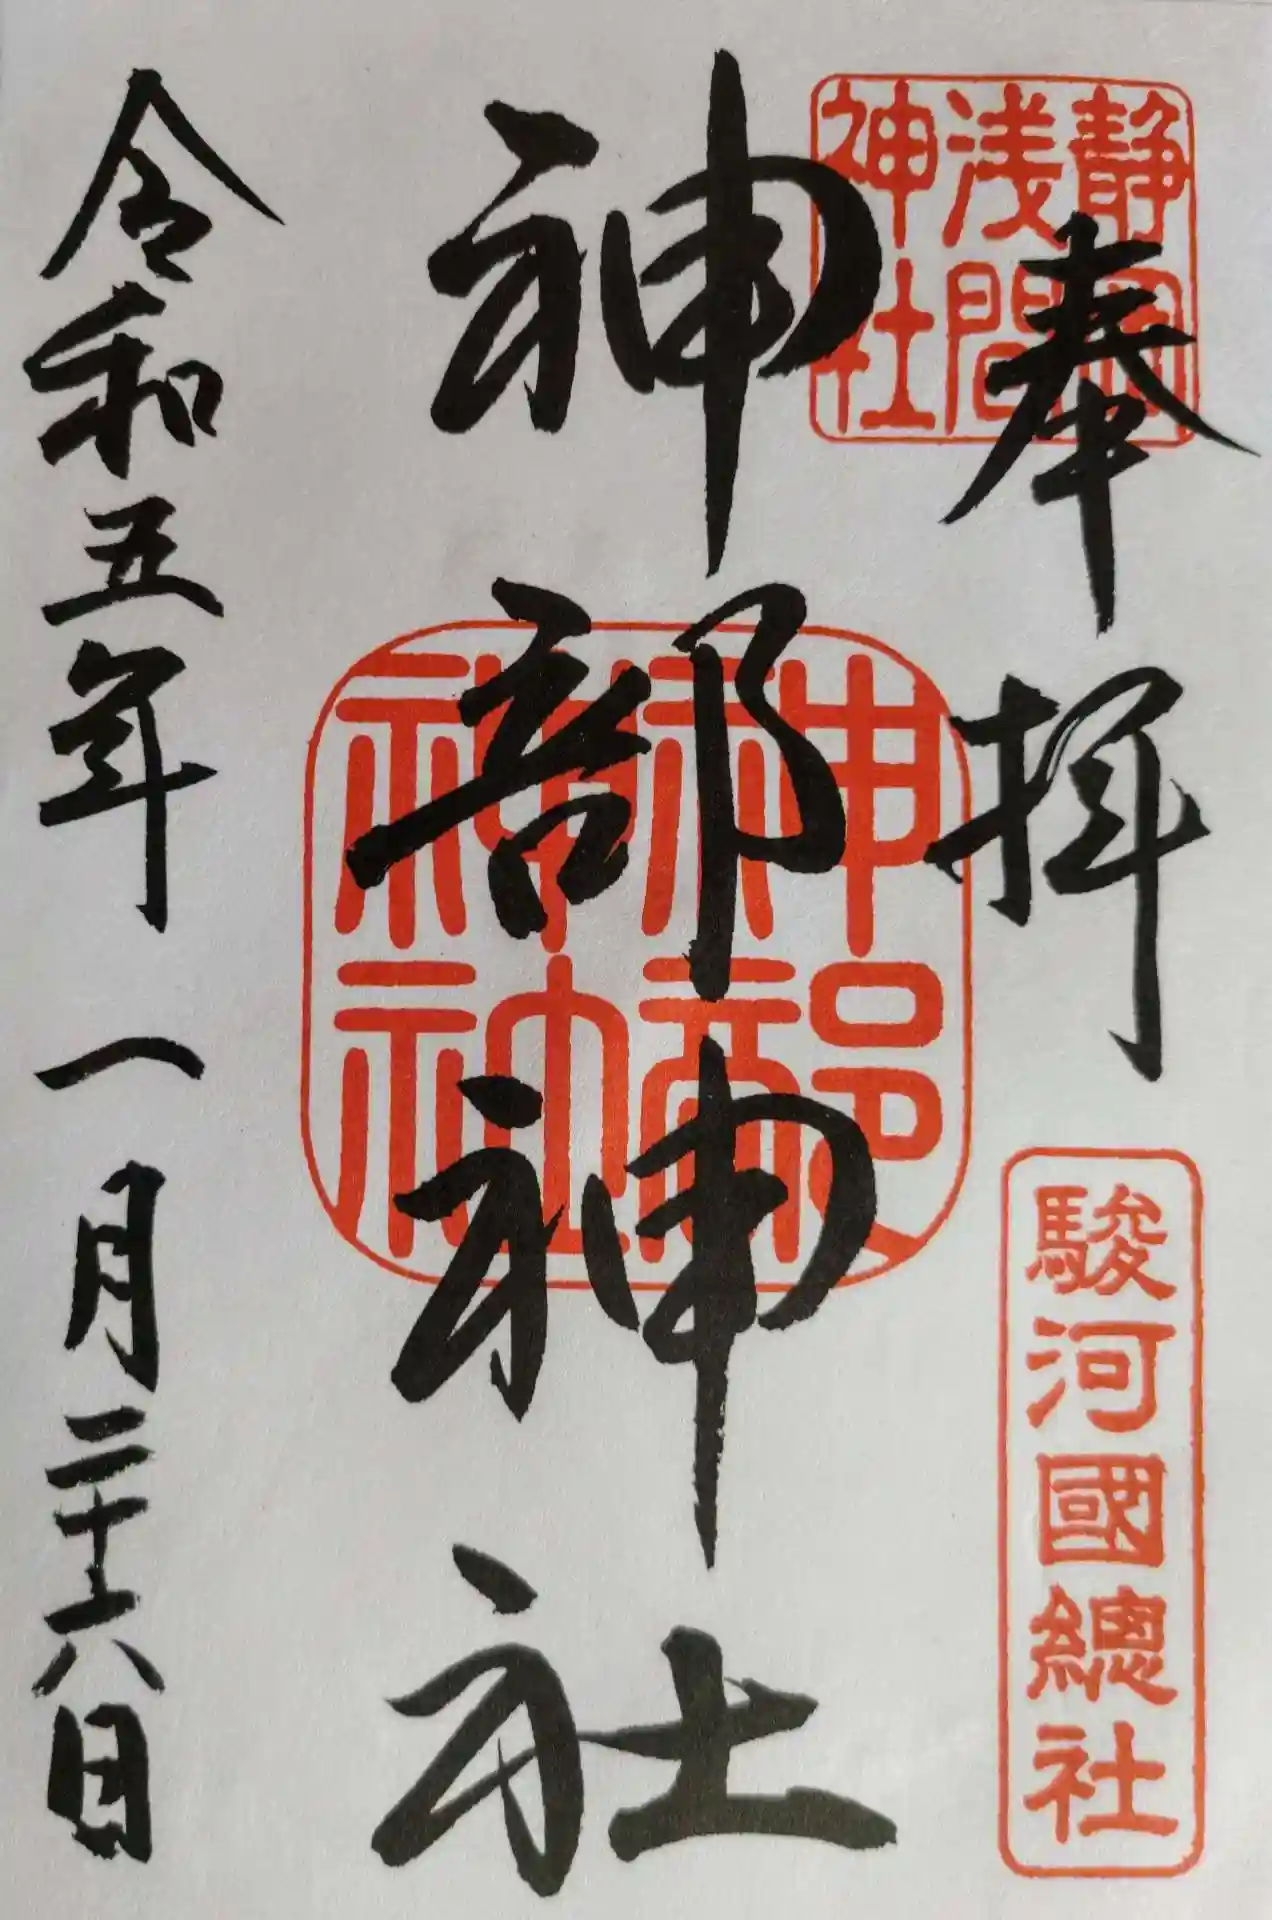 奉拝
静岡
浅間
神社
駿河國總社
神部神社
神部
神社
令和五年一月二十六日